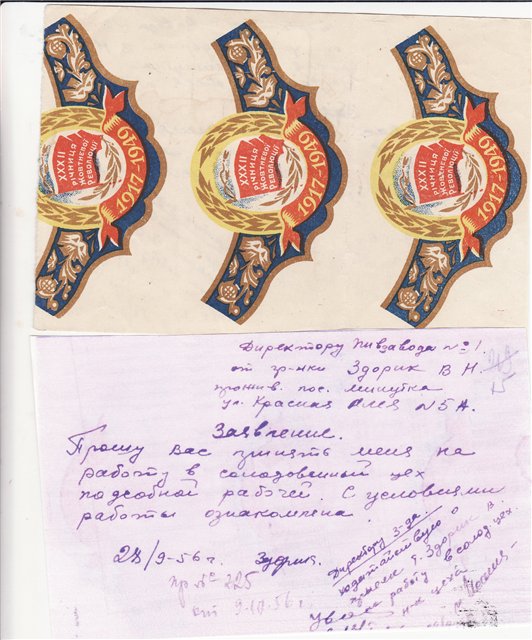 XXXII
РІЧНИЦЯ
ЖОВТНЕВОЇ
РЕВОЛЮЦІЇ
1917-1949
XXXII
РІЧНИЦЯ
ЖОВТНЕВОЇ
РЕВОЛЮЦІЇ
1917-1949
XXXII
РІЧНИЦЯ
ЖОВТНЕВОЇ
РЕВОЛЮЦІЇ
1917-1949
Директору Пивзавода №1
от гр-нки Здорик В Н.
прожив. пос. минутка
ул. Красная Алея N5А.
Заявление.
Прошу вас принять меня на
работу в солодовенный цех
подсобной рабочей. С условиями
работы ознакомлена.
28/9-56 г. Здорик.
пр №225
от 9-10-56 г.
Директору З-да.
ходатайствую о
приеме т. Здорик В
на работу в солод цех